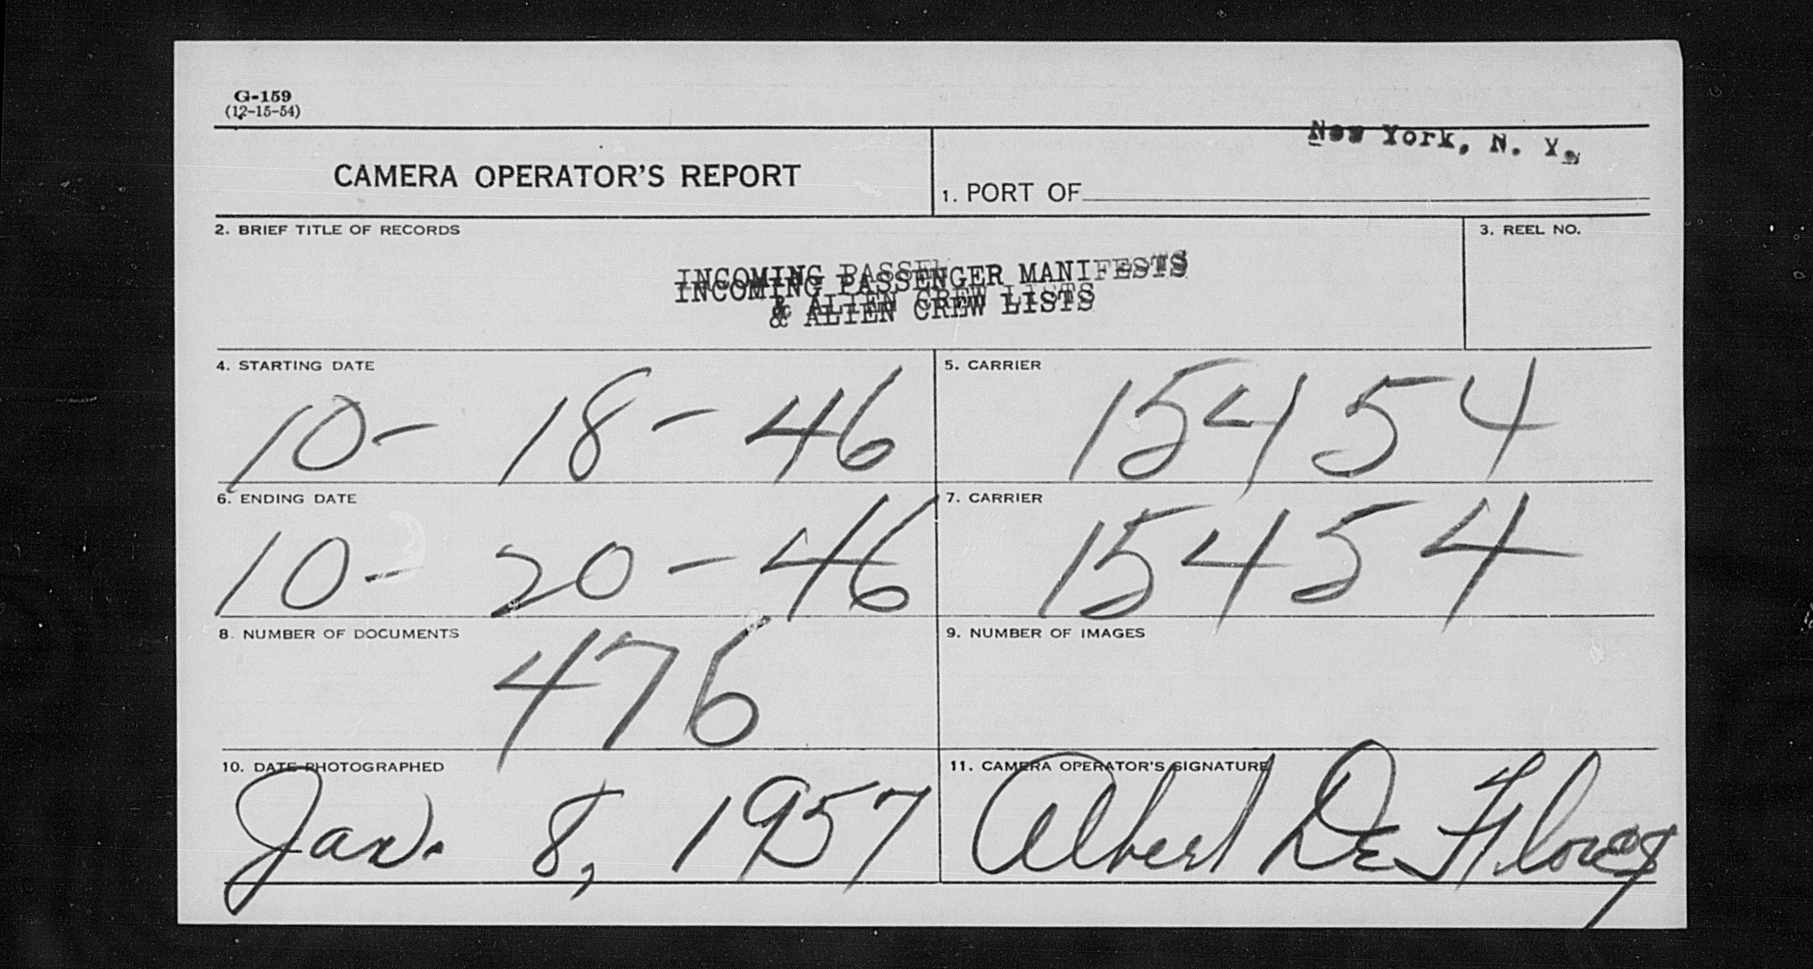 G-159
(12-15-54)
CAMERA OPERATOR'S REPORT
New York, N. Y.
1. PORT OF
2. BRIEF TITLE OF RECORDS
3. REEL NO.
INCOMING PASSE
INCOMING PASSENGER MANIFESTS
& ALIEN CREW LISTS
& ALIEN CREW LISTS
4. STARTING DATE
10- 18-46
5. CARRIER
15454
6. ENDING DATE
10- 20-46
7. CARRIER
15454
8. NUMBER OF DOCUMENTS
476
9. NUMBER OF IMAGES
10. DATE PHOTOGRAPHED
Jan. 8, 1957
11. CAMERA OPERATOR'S SIGNATURE
Albert De